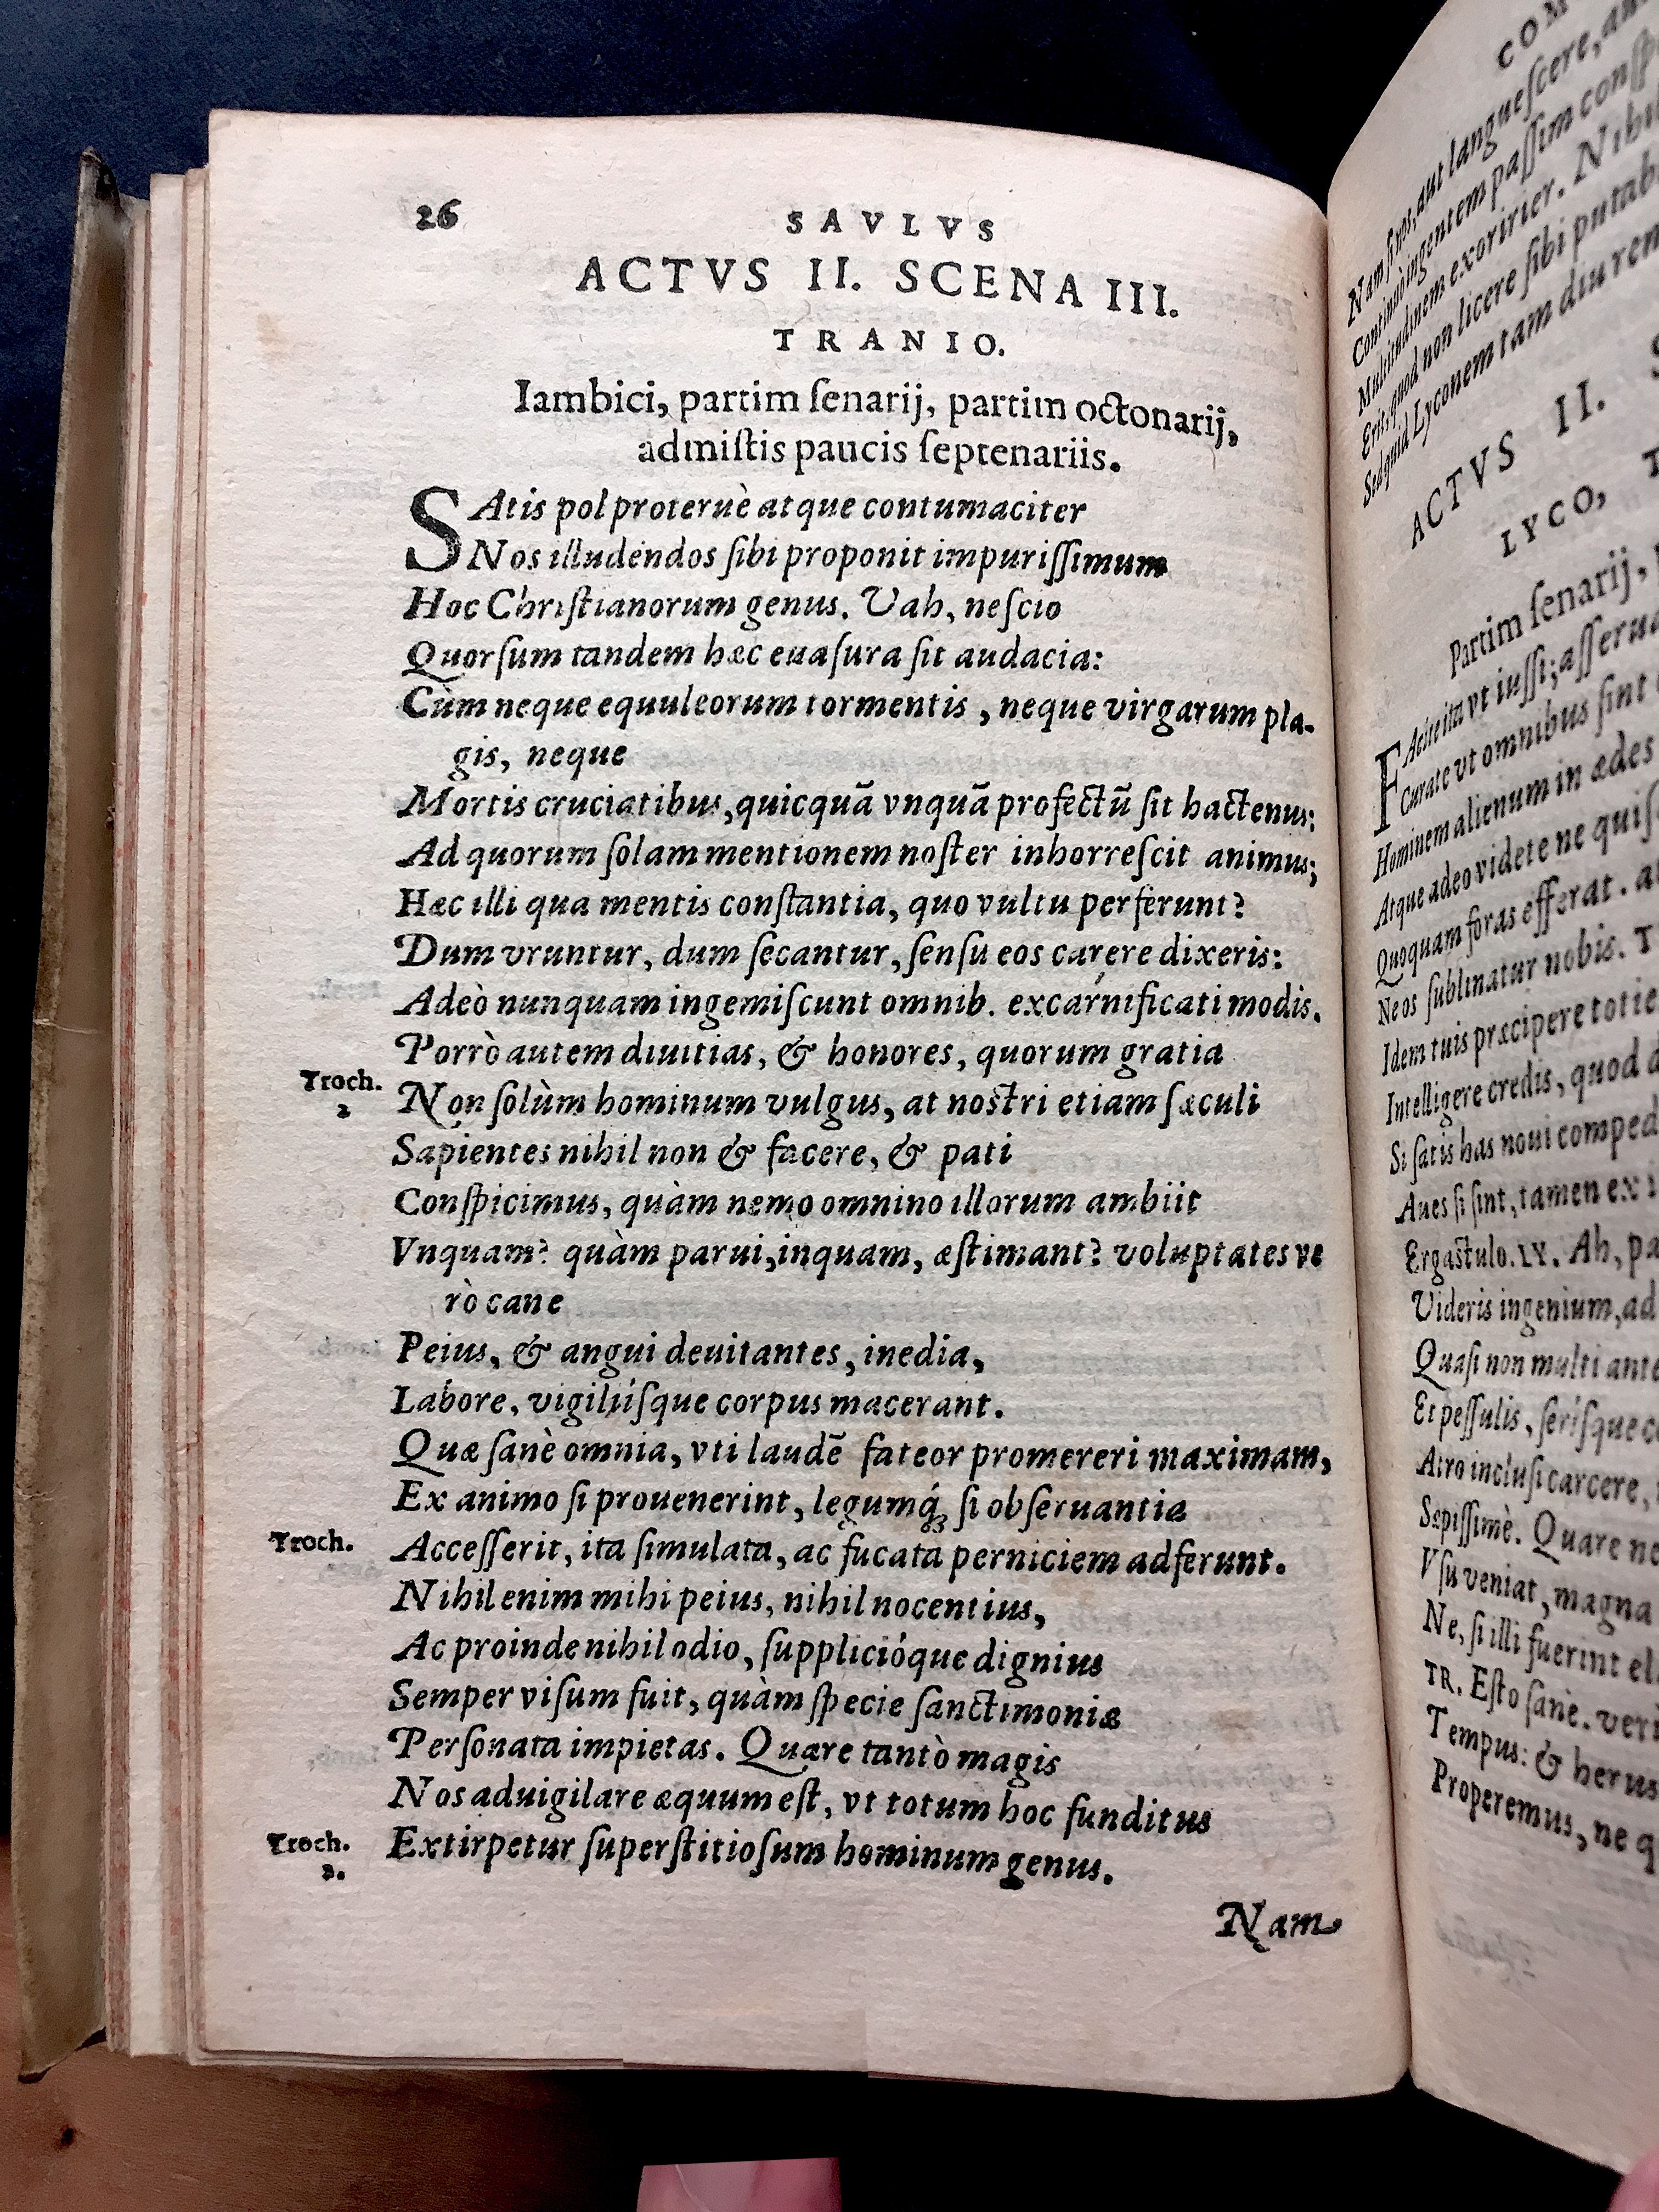 26
SAVLVS
ACTVS II. SCENA III.
TRANIO.
Iambici, partim ſenarij, partim octonarij,
admiſtis paucis ſeptenariis.
SAtis pol proteruè atque contumaciter
Nos illudendos ſibi proponit impuriſſimum
Hoc Chriſtianorum genus. Vah, neſcio
Quorſum tandem hæc euaſura ſit audacia:
Cùm neque equuleorum tormentis, neque virgarum pla-
gis, neque
Mortis cruciatibus, quicquã vnquã profectũ ſit hactenus:
Ad quorum ſolam mentionem noſter inhorreſcit animus;
Hæc illi qua mentis conſtantia, quo vultu perferunt?
Dum vruntur, dum ſecantur, ſenſu eos carere dixeris:
Adeò nunquam ingemiſcunt omnib. excarnificati modis.
Porrò autem diuitias, & honores, quorum gratia
Troch.
2
Non ſolùm hominum vulgus, at noſtri etiam ſæculi
Sapientes nihil non & facere, & pati
Conſpicimus, quàm nemo omnino illorum ambiit
Vnquam? quàm parui, inquam, æſtimant? voluptates ve
rò cane
Peius, & angui deuitantes, inedia,
Labore, vigiliíſque corpus macerant.
Quæ ſanè omnia, vti laudẽ fateor promereri maximam,
Ex animo ſi prouenerint, legumq́ꝫ ſi obſeruantia
Troch.
Acceſſerit, ita ſimulata, ac fucata perniciem adferunt.
Nihil enim mihi peius, nihil nocentius,
Ac proinde nihil odio, ſuppliciόque dignius
Semper viſum fuit, quàm ſpecie ſanctimoniæ
Perſonata impietas. Quare tantò magis
Nos aduigilare æquum eſt, vt totum hoc funditus
Troch.
2.
Extirpetur ſuperſtitioſum hominum genus.
Nam
COM
Nam ſi nos, aut langueſcere, au
Continuò ingentem paſſim conſp
Multitudinem exoririer. Nihi
Erit, quod non licere ſibi putab
Sed quid Lyconem tam diu rem
ACTVS II. S
LYCO, T
Partim ſenarij,
FAcite ita vt iuſſi; aſſerua
Curate vt omnibus ſint
Hominem alienum in ædes
Atque adeo videte ne quiſ
Quoquam foras efferat. a
Ne os ſublinatur nobis. T
Idem tuis præcipere totie
Intelligere credis, quod a
Si ſatis has noui comped
Aues ſi ſint, tamen ex i
Ergaſtulo. LY. Ah, pa
Videris ingenium, ad
Quaſi non multi ante
Et peſſulis, ſeriſque c
Atro incluſi carcere,
Sæpiſſimè. Quare ne
Vſu veniat, magna
Ne, ſi illi fuerint el
TR. Eſto ſanè. ver
Tempus: & herus
Properemus, ne q